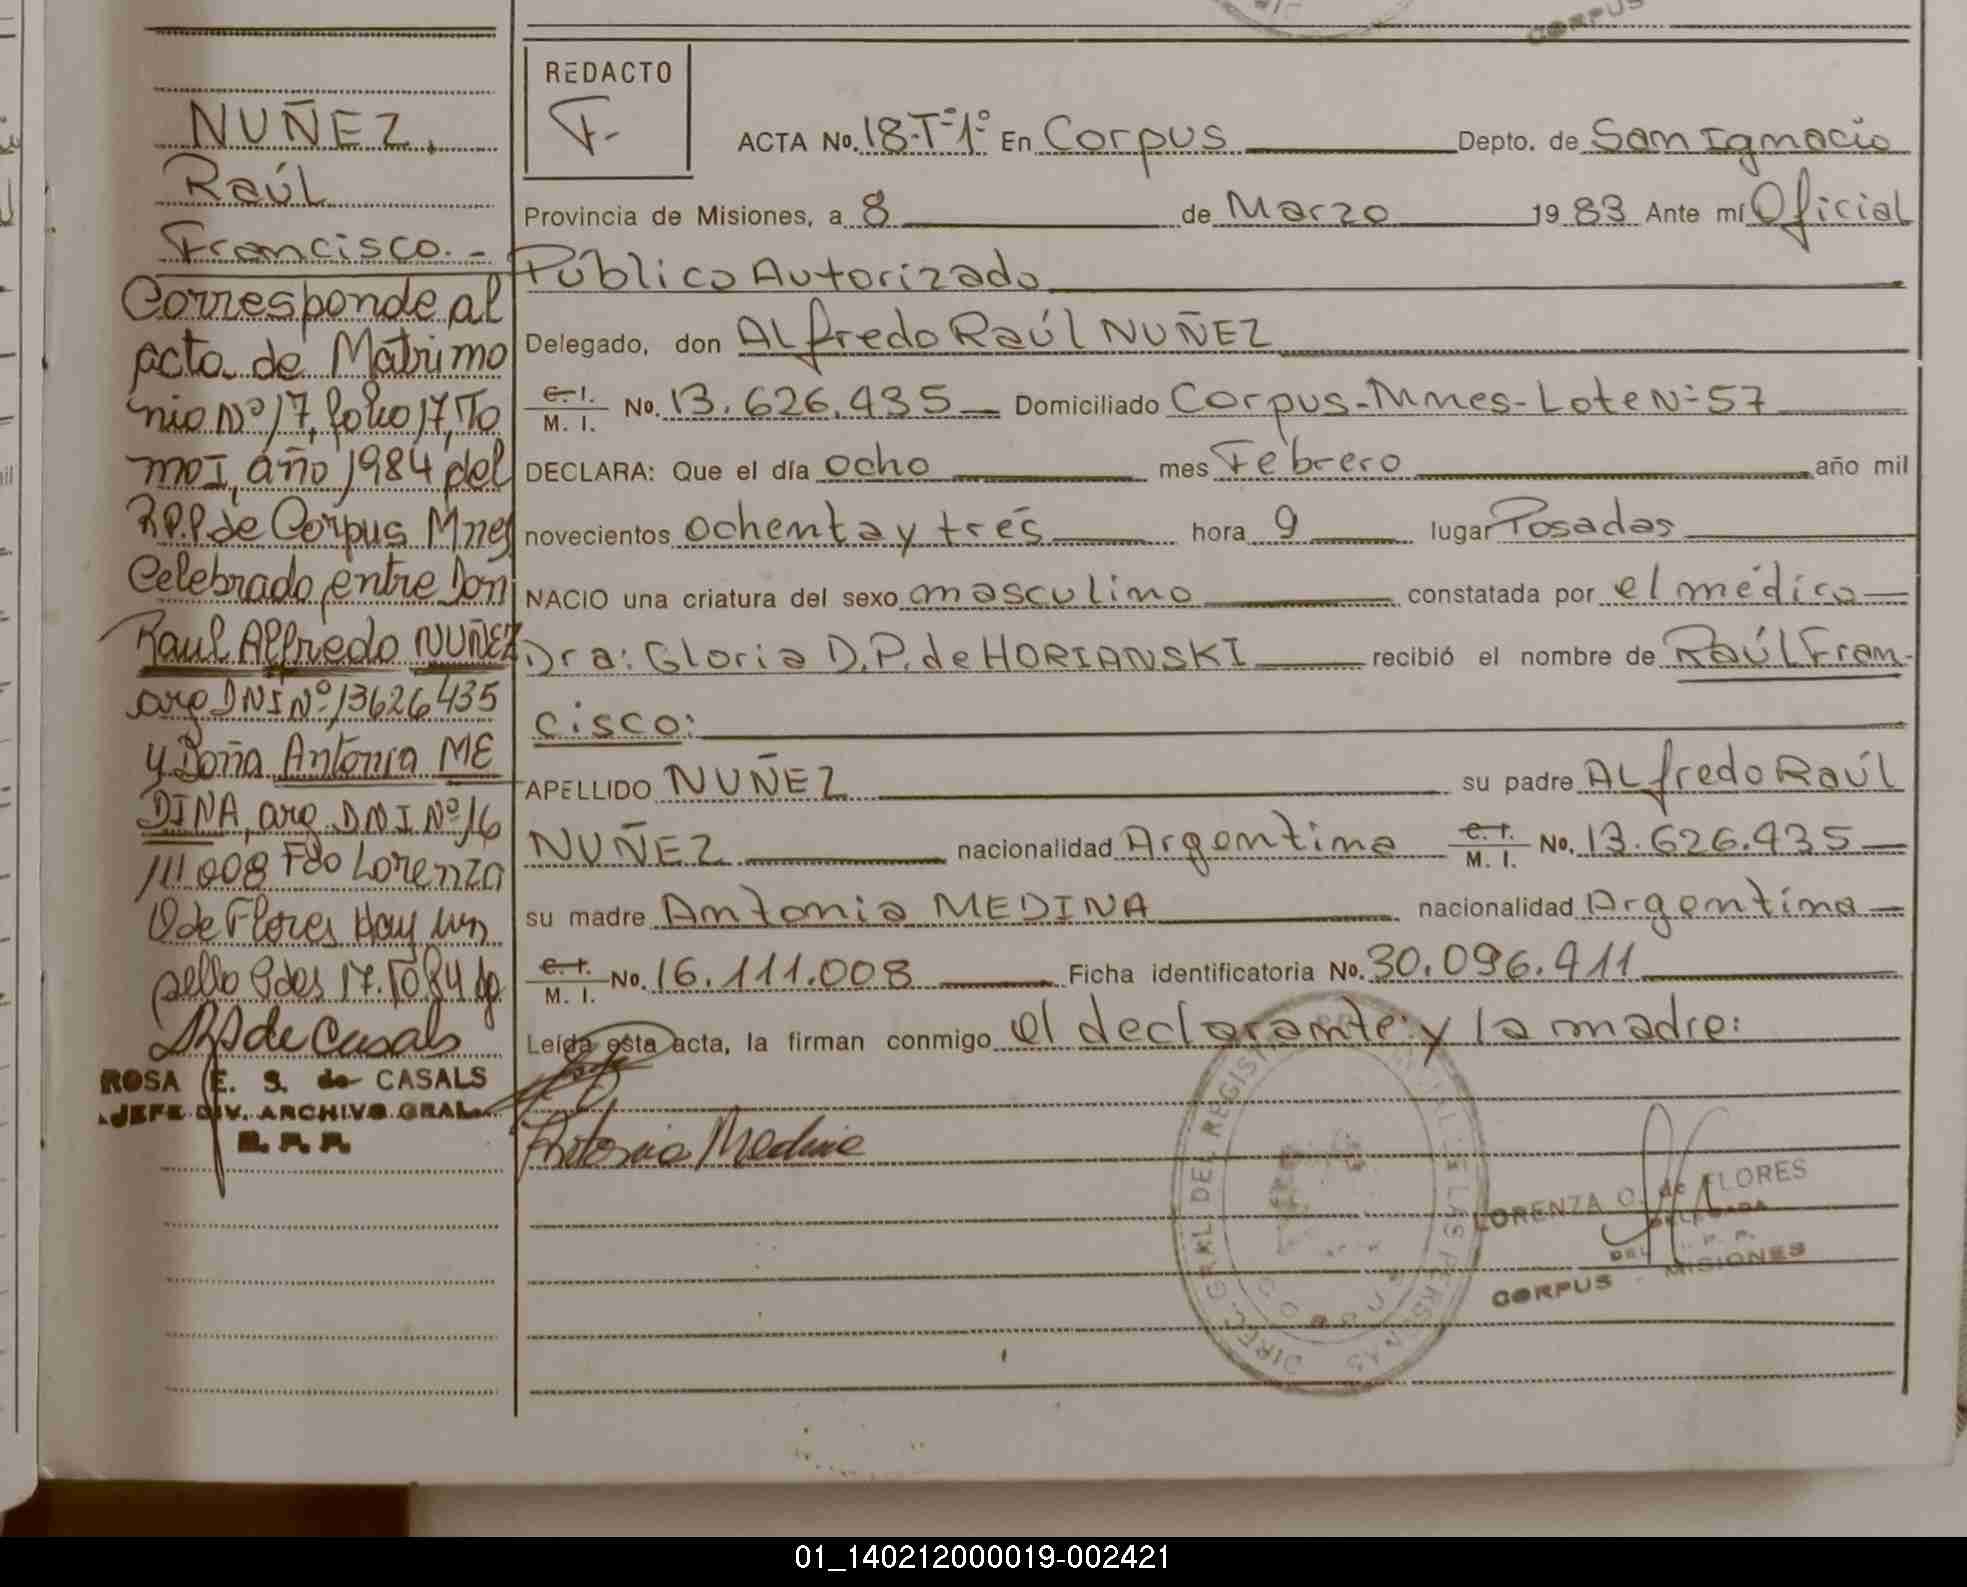 CORPUS
NUÑEZ,
Raúl
Francisco.-
Corresponde al
acta de Matrimo
nio Nº 17, folio 17, To
mo I, año 1984 del
R.P.P. de Corpus Mnes
Celebrado entre Don
Raul Alfredo NUÑEZ
arg DNI Nº 13626435
y Doña Antonia ME
DINA, arg. DNI Nº 16
111.008 Fdo Lorenza
O de Flores Hay un
sello Pdas 17.
de Casals
ROSA E. S. de CASALS
JEFE DIV. ARCHIVO GRAL.
R. P. P.
REDACTO
F.-
ACTA No. 18-Tº-1º En Corpus Depto. de San Ignacio
Provincia de Misiones, a 8 de Marzo 1983 Ante mí Oficial
Público Autorizado
Delegado, don ALfredo Raúl NUÑEZ
C. I. M. I. No. 13.626.435 Domiciliado Corpus-Mnes-Lote Nº 57
DECLARA: Que el día ocho mes Febrero año mil
novecientos ochenta y trés hora 9 lugar Posadas
NACIO una criatura del sexo masculino constatada por el médico
Dra: Gloria D.P. de HORIANSKI recibió el nombre de Raúl Fran-
cisco:
APELLIDO NUÑEZ su padre ALfredo Raúl
NUÑEZ nacionalidad Argentina C. I. M. I. No. 13.626.435
su madre Antonia MEDINA nacionalidad Argentina
C. I. M. I. No. 16.111.008 Ficha identificatoria No. 30.096.411
Leída esta acta, la firman conmigo el declarante: y la madre:
Antonia Medina
DIREC. GRAL. DEL REGIST PROVINCIAL DE LAS PERSONAS
LORENZA O. de FLORES
DELEGADA
DEL R. P. P.
CORPUS - MISIONES
01_140212000019-002421